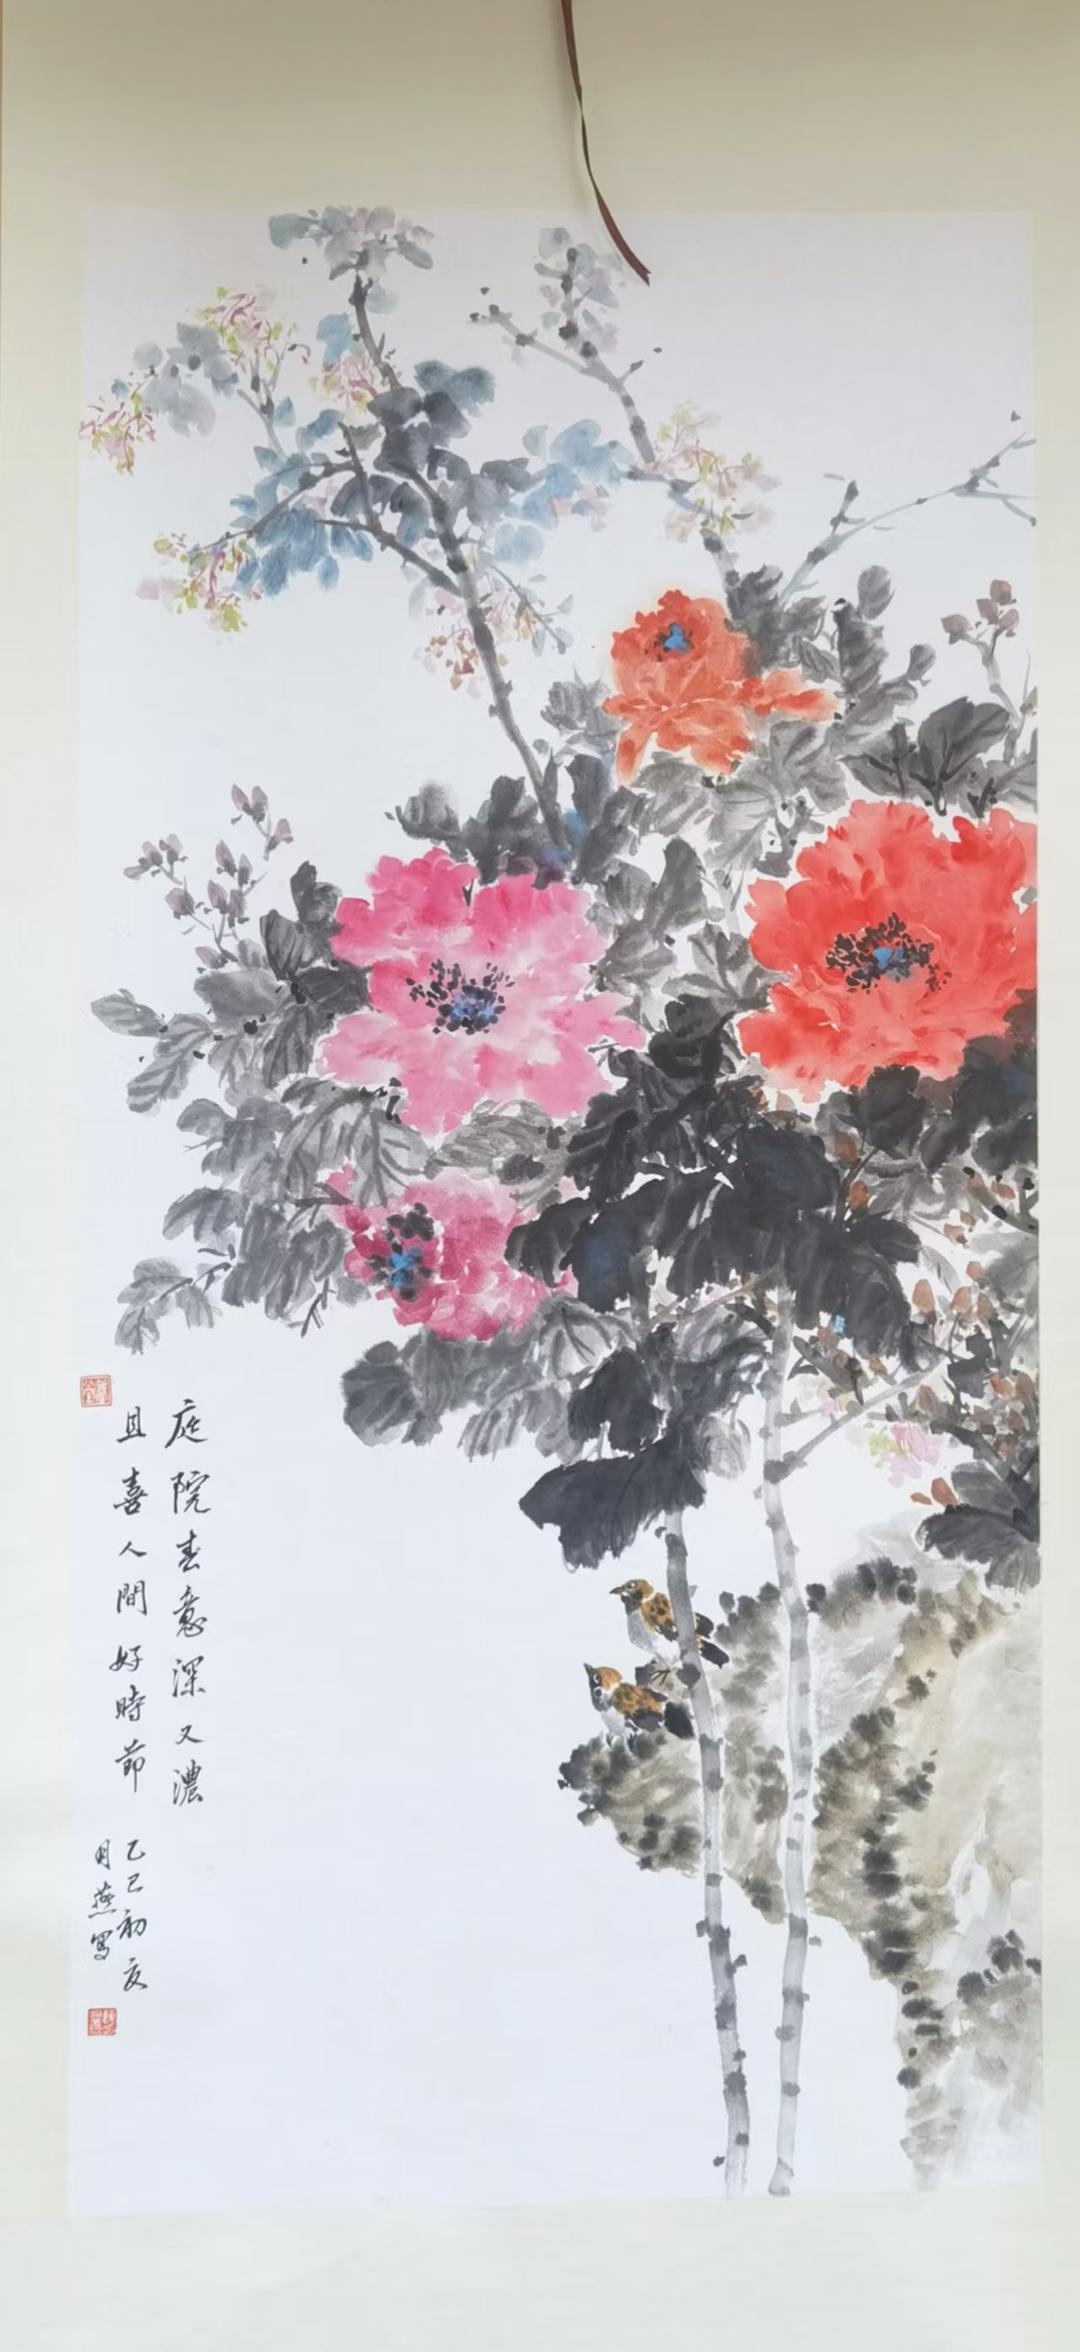 庭院春意深又濃
且喜人間好時節
乙巳初夏
月燕寫